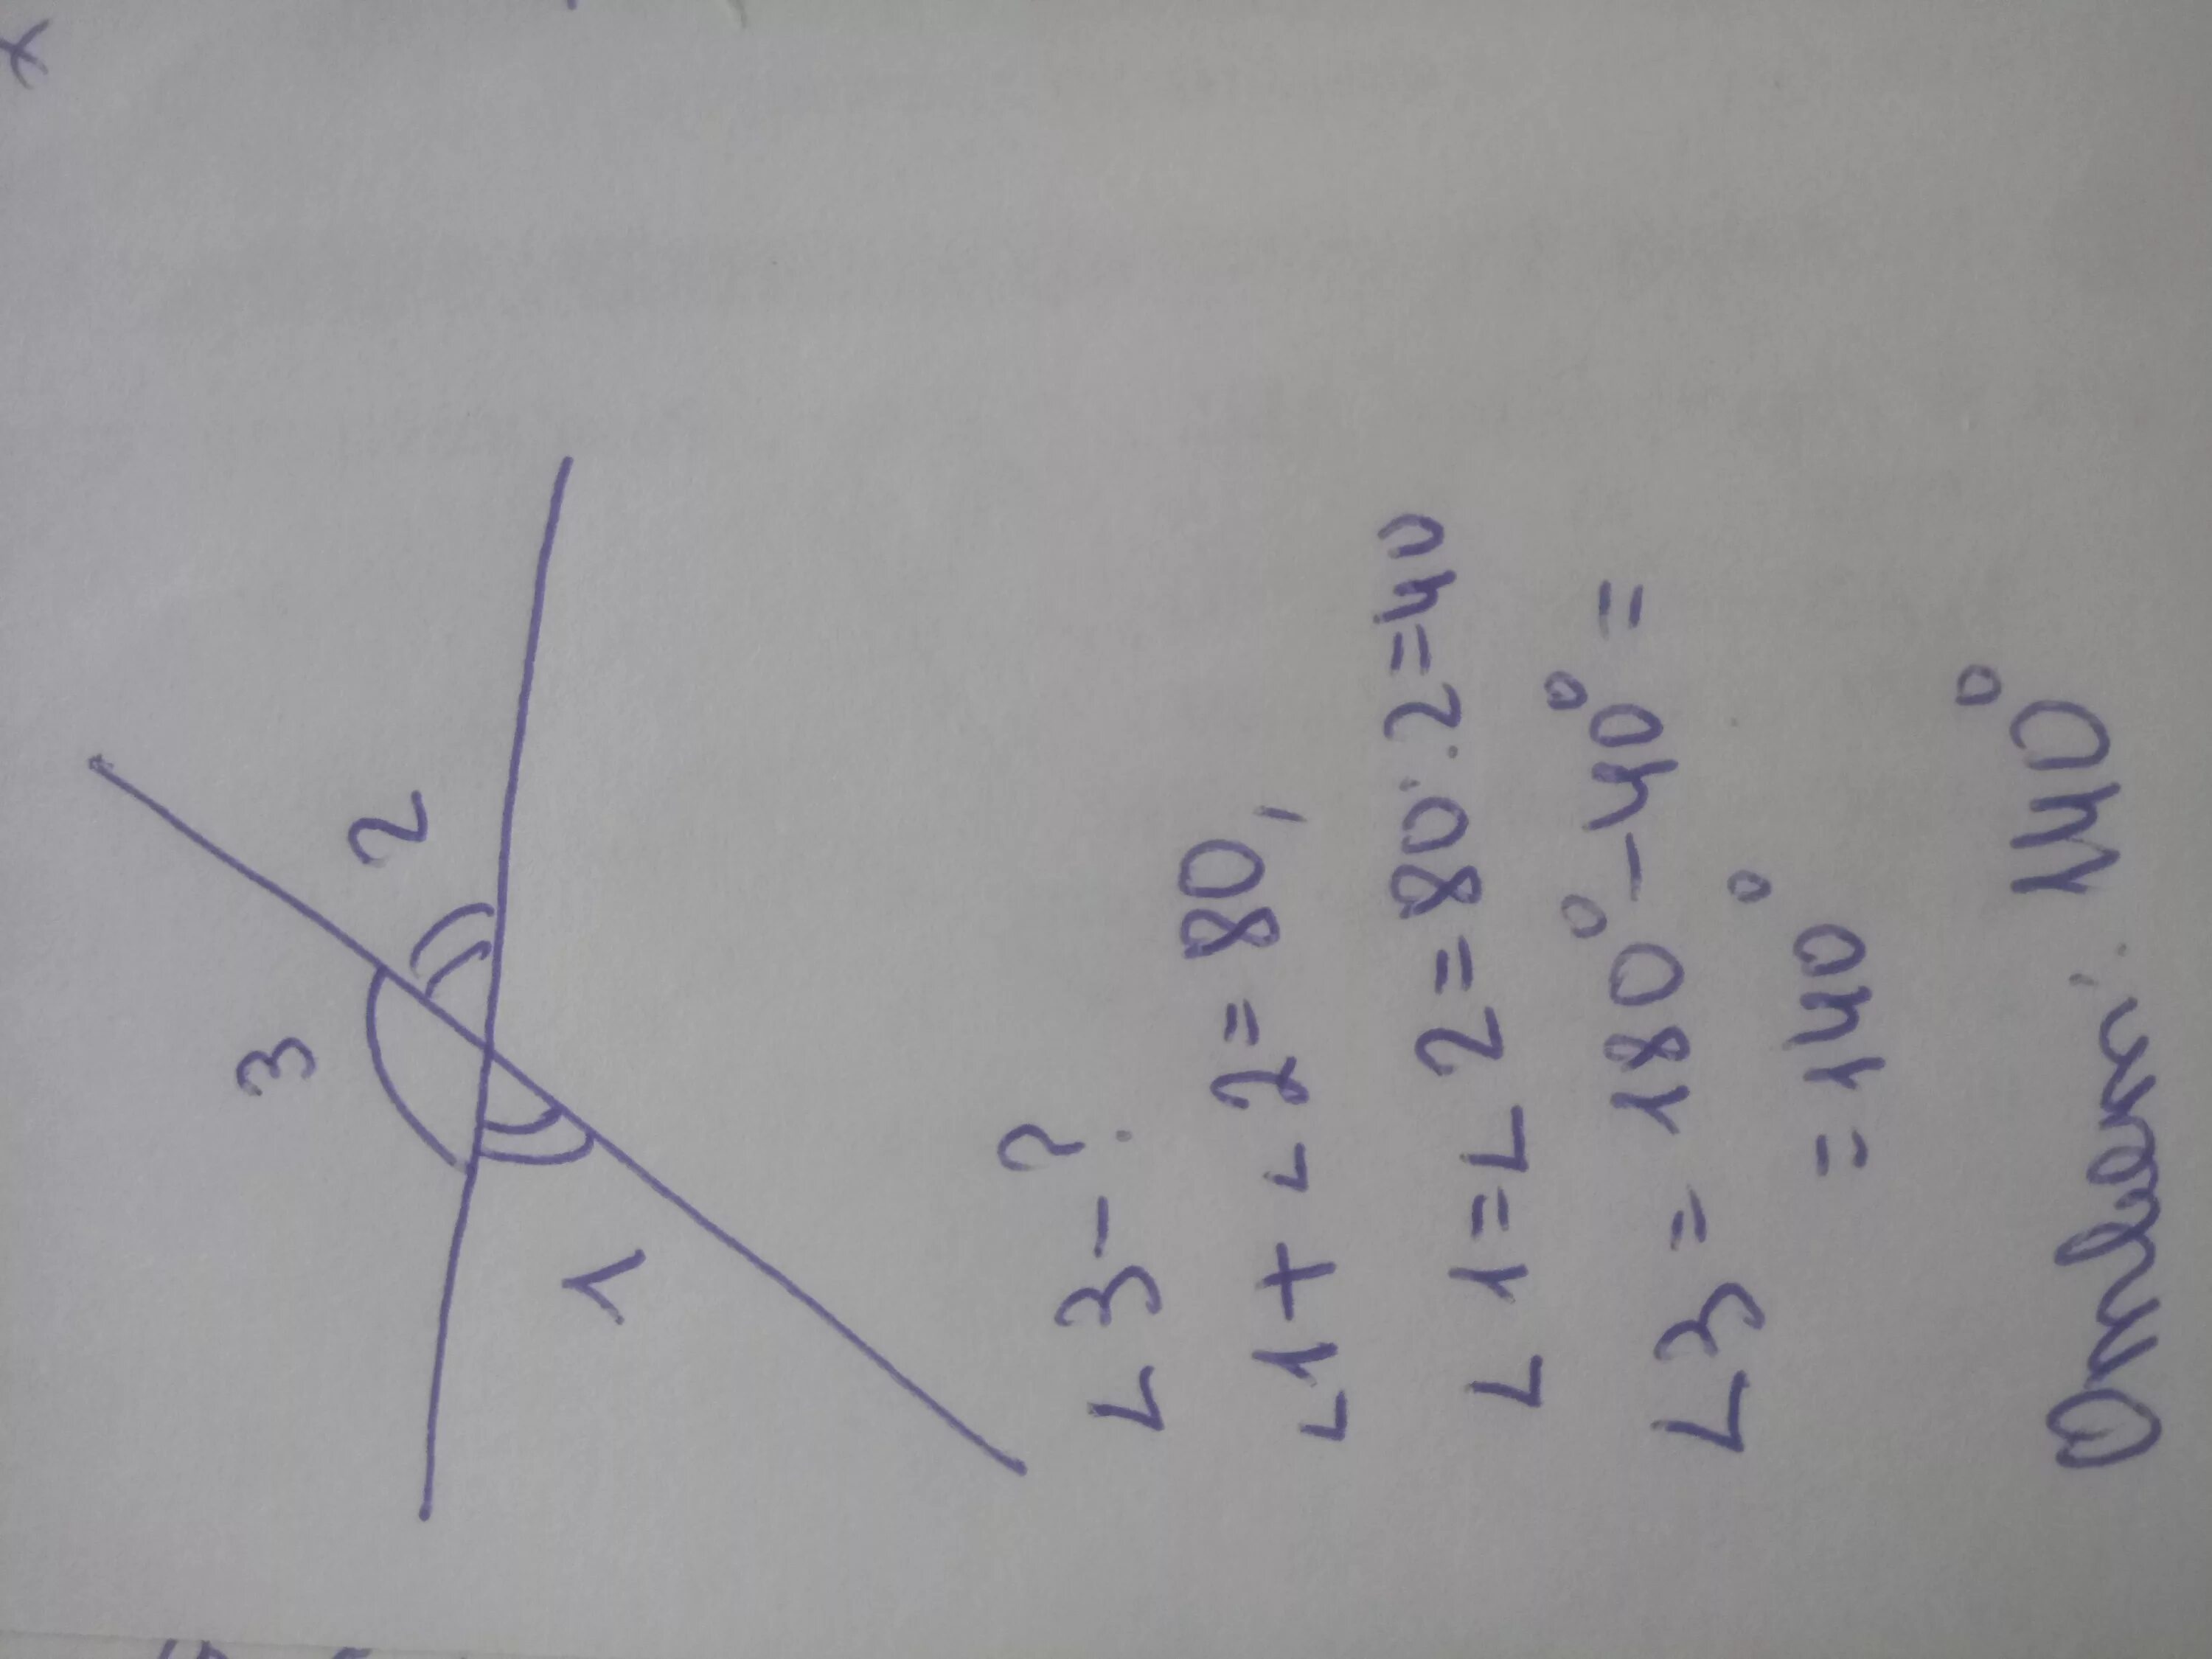 2
3
1
∠3-?
∠1+∠2=80,
∠1=∠2=80:2=40
∠3=180°-40°=
=140°
Ответ: 140°